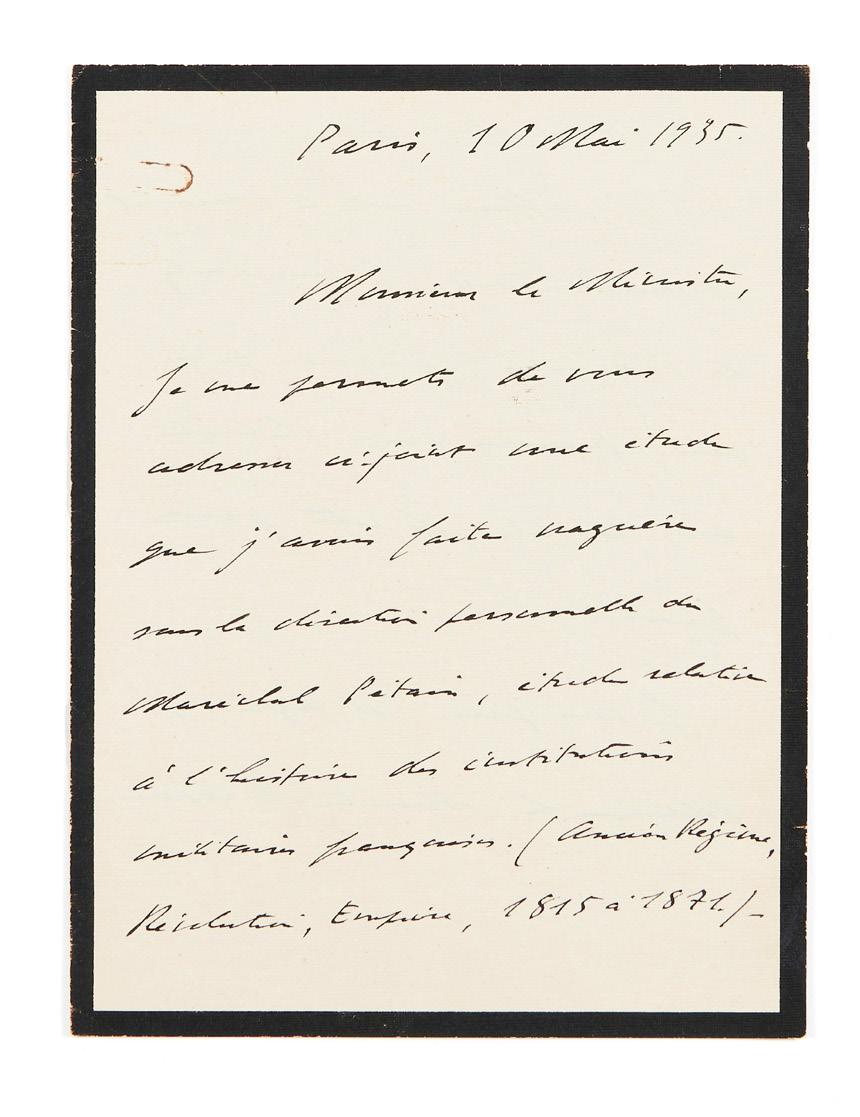 Paris, 10 Mai 1935.
Monsieur le Ministre,
Je me permets de vous
adresser ci-joint une étude
que j'avais faite naguère
sous la direction personnelle du
Maréchal Pétain, étude relative
à l'histoire des institutions
militaires françaises. (Ancien Régime,
Révolution, Empire, 1815 à 1871.)_